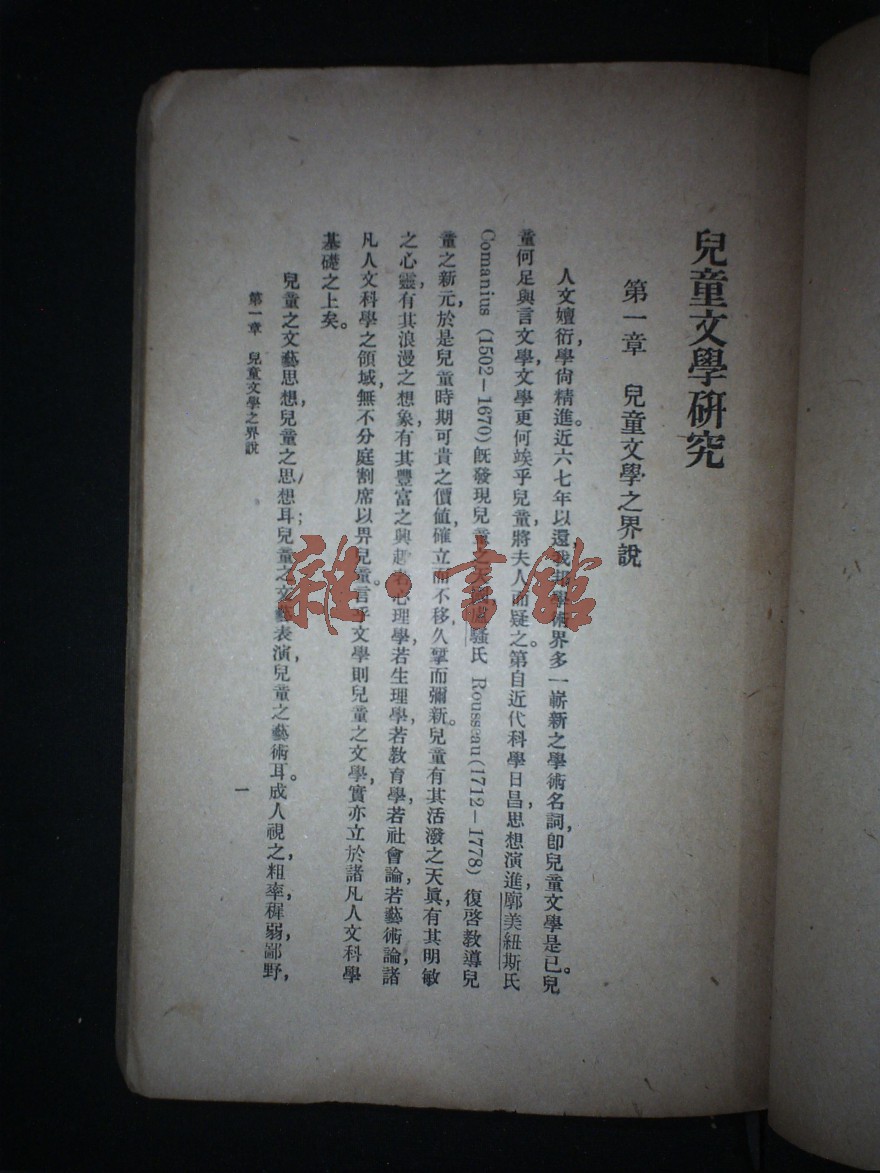 兒童文學研究
第一章 兒童文學之界說
人文嬗衍,學尙精進。近六七年以還,我邦學術界多一嶄新之學術名詞,卽兒童文學是已。兒
童何足與言文學,文學更何竢乎兒童,將夫人而疑之。第自近代科學日昌,思想演進,廓美紐斯氏
Comanius (1502—1670)旣發現兒童之天 騷氏 Rousseau(1712—1778) 復啓敎導兒
童之新元,於是兒童時期可貴之價値,確立而不移,久掔而彌新。兒童有其活潑之天眞,有其明敏
之心靈,有其浪漫之想象,有其豐富之興趣,若心理學,若生理學,若敎育學,若社會論,若藝術論,諸
凡人文科學之領域,無不分庭割席以畀兒童。言乎文學,則兒童之文學,實亦立於諸凡人文科學
基礎之上矣。
兒童之文藝思想,兒童之思想耳;兒童之文藝表演,兒童之藝術耳。成人視之,粗率穉弱,鄙野,
第一章 兒童文學之界說
一
雜·書館